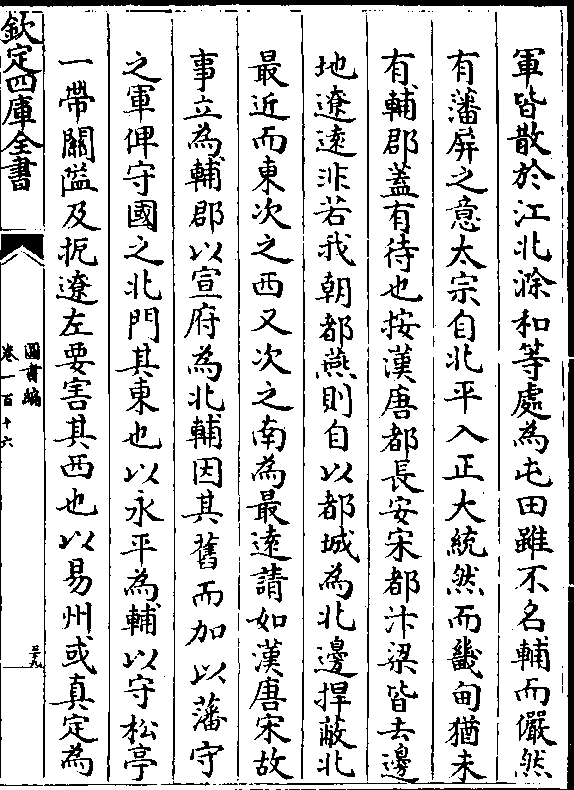 軍皆散於江北滁和等處為屯田雖不名輔而儼然
有藩屏之意太宗自北平入正大統然而畿甸猶未
有輔郡蓋有待也按漢唐都長安宋都汴梁皆去邊
地遼遠非若我朝都燕則自以都城為北邊捍蔽北
最近而東次之西又次之南為最遠請如漢唐宋故
事立為輔郡以宣府為北輔因其舊而加以藩守
之軍俾守國之北門其東也以永平為輔以守松亭
一帶關隘及扼遼左要害其西也以易州或真定為
欽定四庫全書
圖書編
卷一百十六
三十九